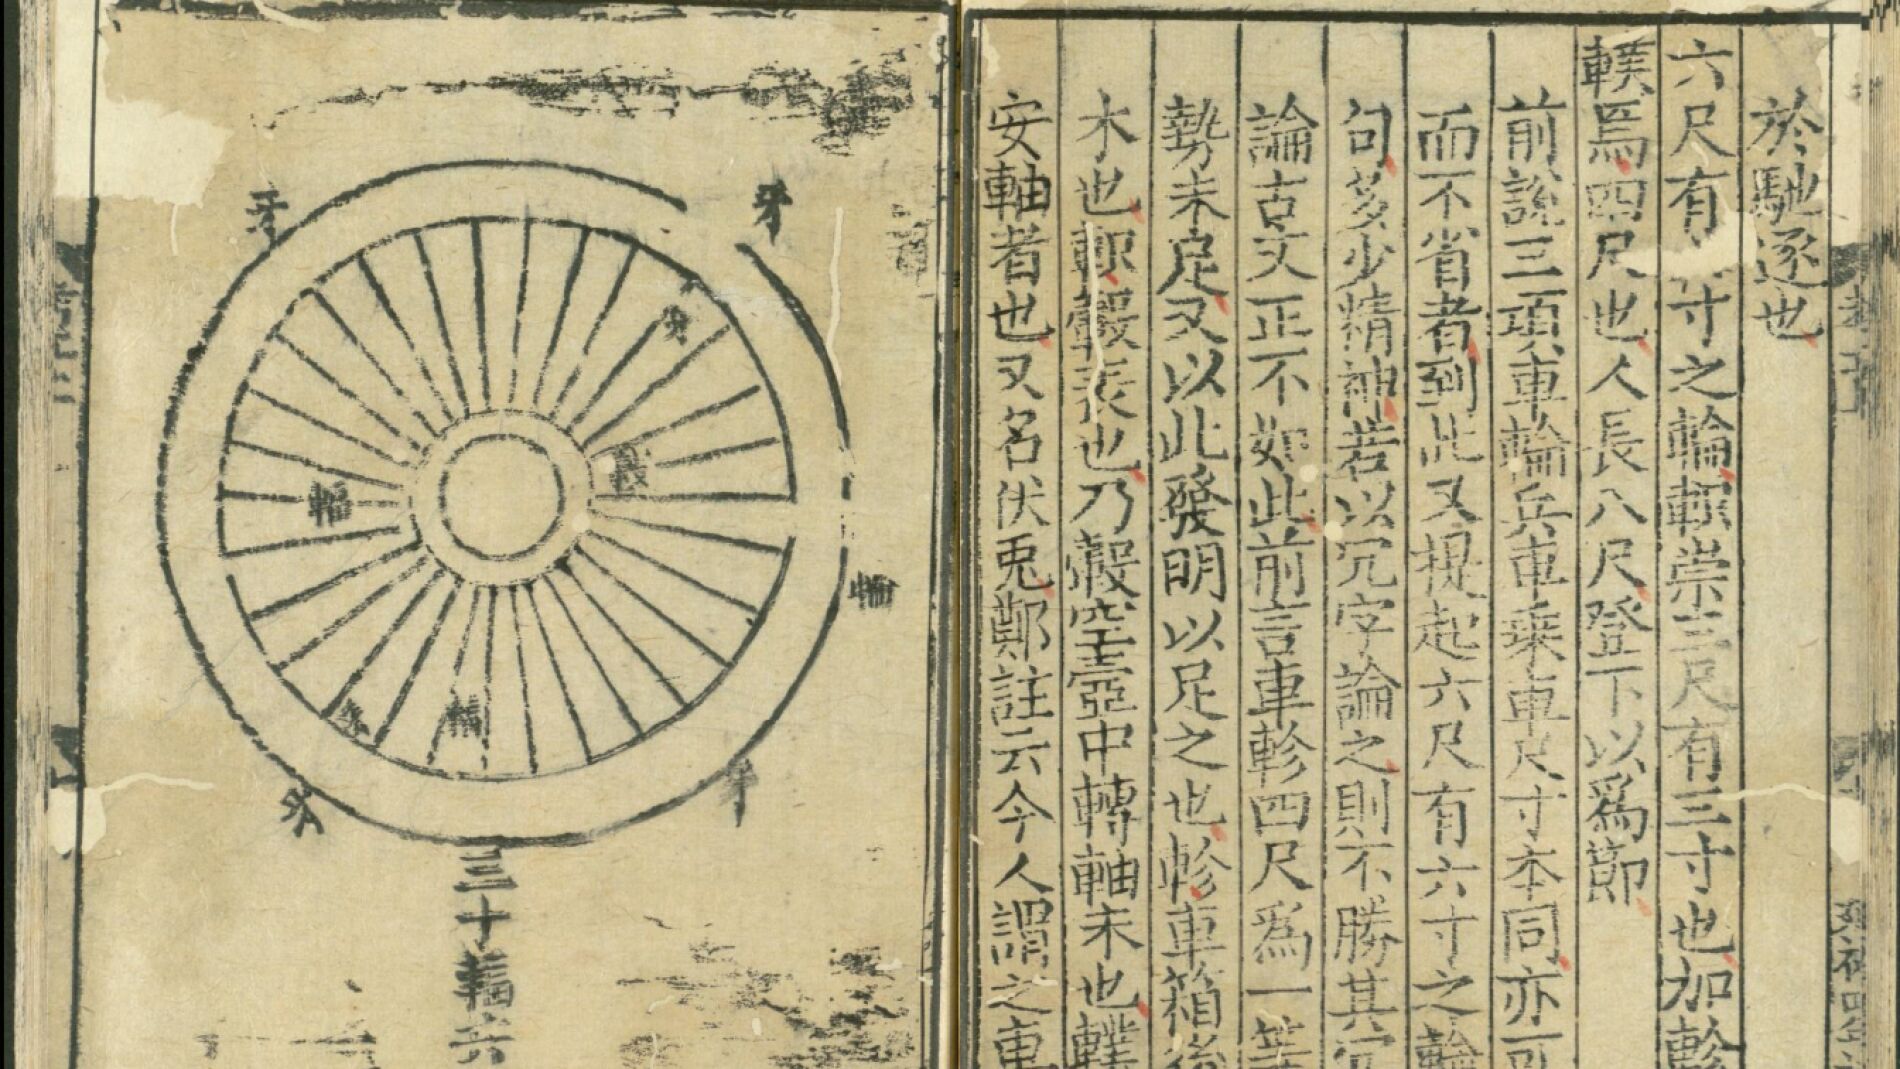 於馳逐也
六尺有 寸之輪軹崇三尺有三寸也加軫
轐焉四尺也人長八尺登下以爲節
前說三項車輪兵車乘車尺寸本同亦
而不省者到此又提起六尺有六寸之輪
句多少精神若以冗字論之則不勝其冗
論古文正不如此前言車軫四尺爲一等
勢未足又以此發明以足之也軫車箱後
木也軹轂末也乃轂空壼中轉軸末也轐
安軸者也又名伏兎鄭註云今人謂之車
牙
牙
轂
輻
輪
輻
牙
牙
三十輻六